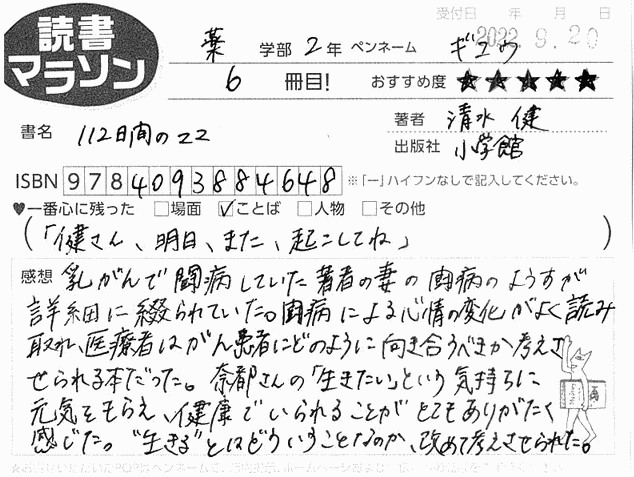 受付日 年 月 日
2022.9.20
読書
マラソン
薬 学部 2年 ペンネーム ギュウ
6 冊目! おすすめ度 ★★★★★
書名 112日間のママ
著者 清水 健
出版社 小学館
ISBN 9784093884648 ※「ー」ハイフンなしで記入してください。
♥一番心に残った □場面 ☑ことば □人物 □その他
(「健さん、明日、また、起こしてね」)
感想 乳がんで闘病していた著者の妻の闘病のようすが
詳細に綴られていた。闘病による心情の変化がよく読み
取れ、医療者はがん患者にどのように向き合うべきか考えさ
せられる本だった。奈都さんの「生きたい」という気持ちに
元気をもらえ、健康でいられることがとてもありがたく
感じた。"生きる"とはどういうことなのか、改めて考えさせられた。